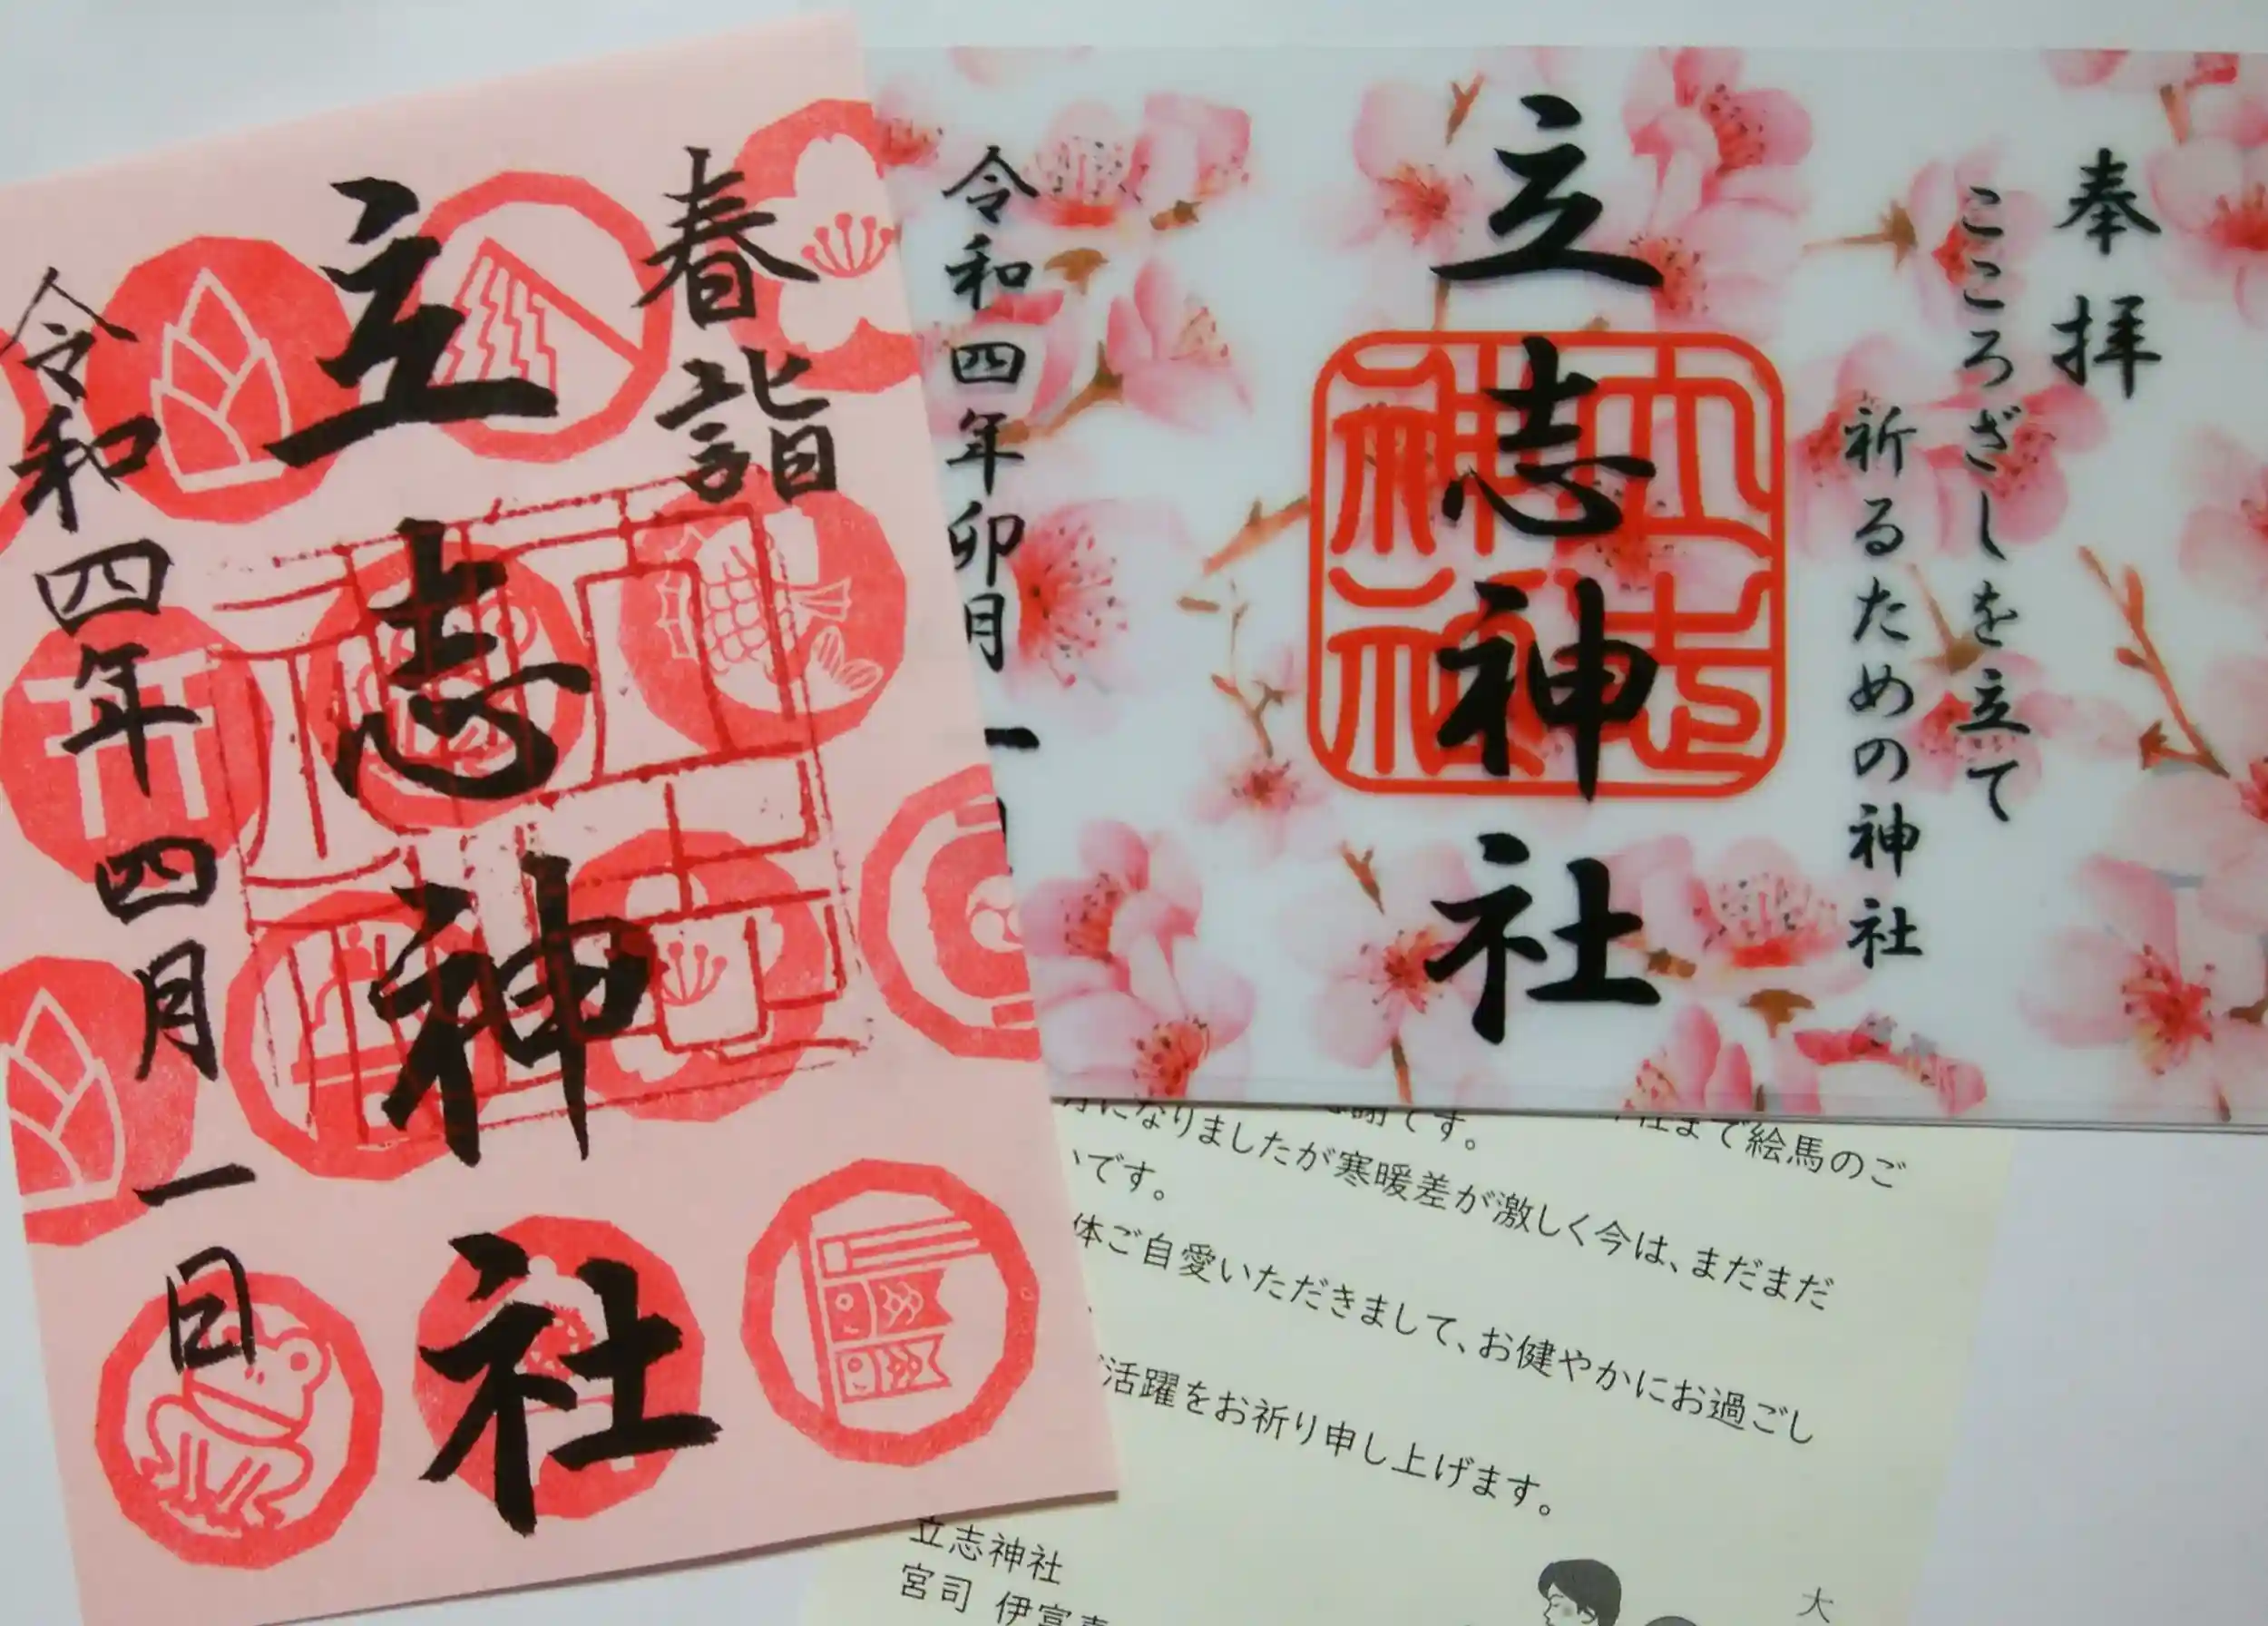 春詣
立志神社
令和四年四月一日
奉拝
こころざしを立て
祈るための神社
立志神社
令和四年卯月一
立志神社
です。
社まで絵馬のご
になりましたが寒暖差が激しく今は、まだまだ
いです。
体ご自愛いただきまして、お健やかにお過ごし
活躍をお祈り申し上げます。
立志神社
宮司 伊
大